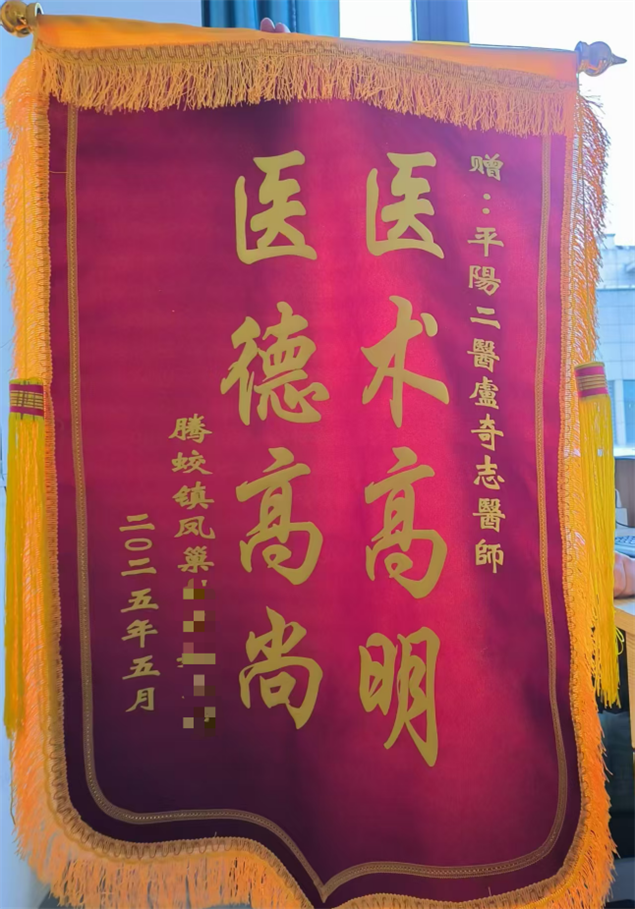 赠：平陽二醫盧奇志醫師
医术高明
医德高尚
腾蛟镇凤巢
二〇二五年五月